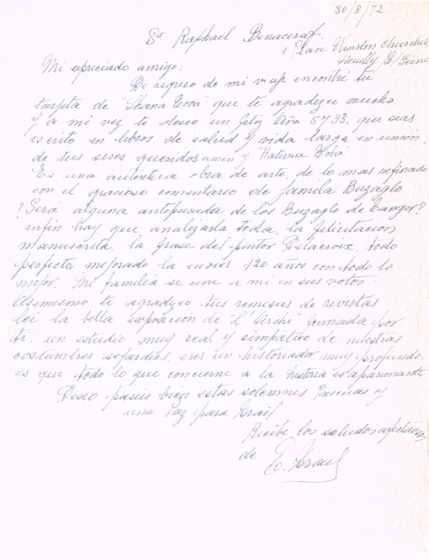 30/8/72
Sr Raphael Benaceraf
1 Place Winston Churchill
Neuilly S/ Seine
Mi apreciado amigo:
De regreso de mi viaje encontré tu
tarjeta de "Shana Tova" que te agradezco mucho.
Y a mi vez te deseo un feliz Año 5733, que seas
escrito en libros de salud y vida larga en unión
de tus seres queridos amén y Hatima Toba
Es una autentica obra de arte, de lo mas refinado
con el gracioso comentario de familia Buzaglo
? Será alguna antepasada de los Buzaglo de Tanger?
enfin hay que analizarla toda, la felicitacion
manuscrita, la frase del pintor Delacroix, todo
perfecto, mejorado la envies 120 años con todo lo
mejor. Mi familia se une a mi en sus votos.
Asimismo te agradezco tus remesas de revistas
leí la bella exposacion de "L'Arche" firmada por
ti, un estudio muy real y simpatico de nuestras
costumbres sefardies, eres un historiador muy profundo.
es que todo lo que concierne a la historia es apasionante
Deseo paseis bien estas solemnes Pascuas y
una Paz para Israel
Recibe los saludos afectuosos
de E. Israel